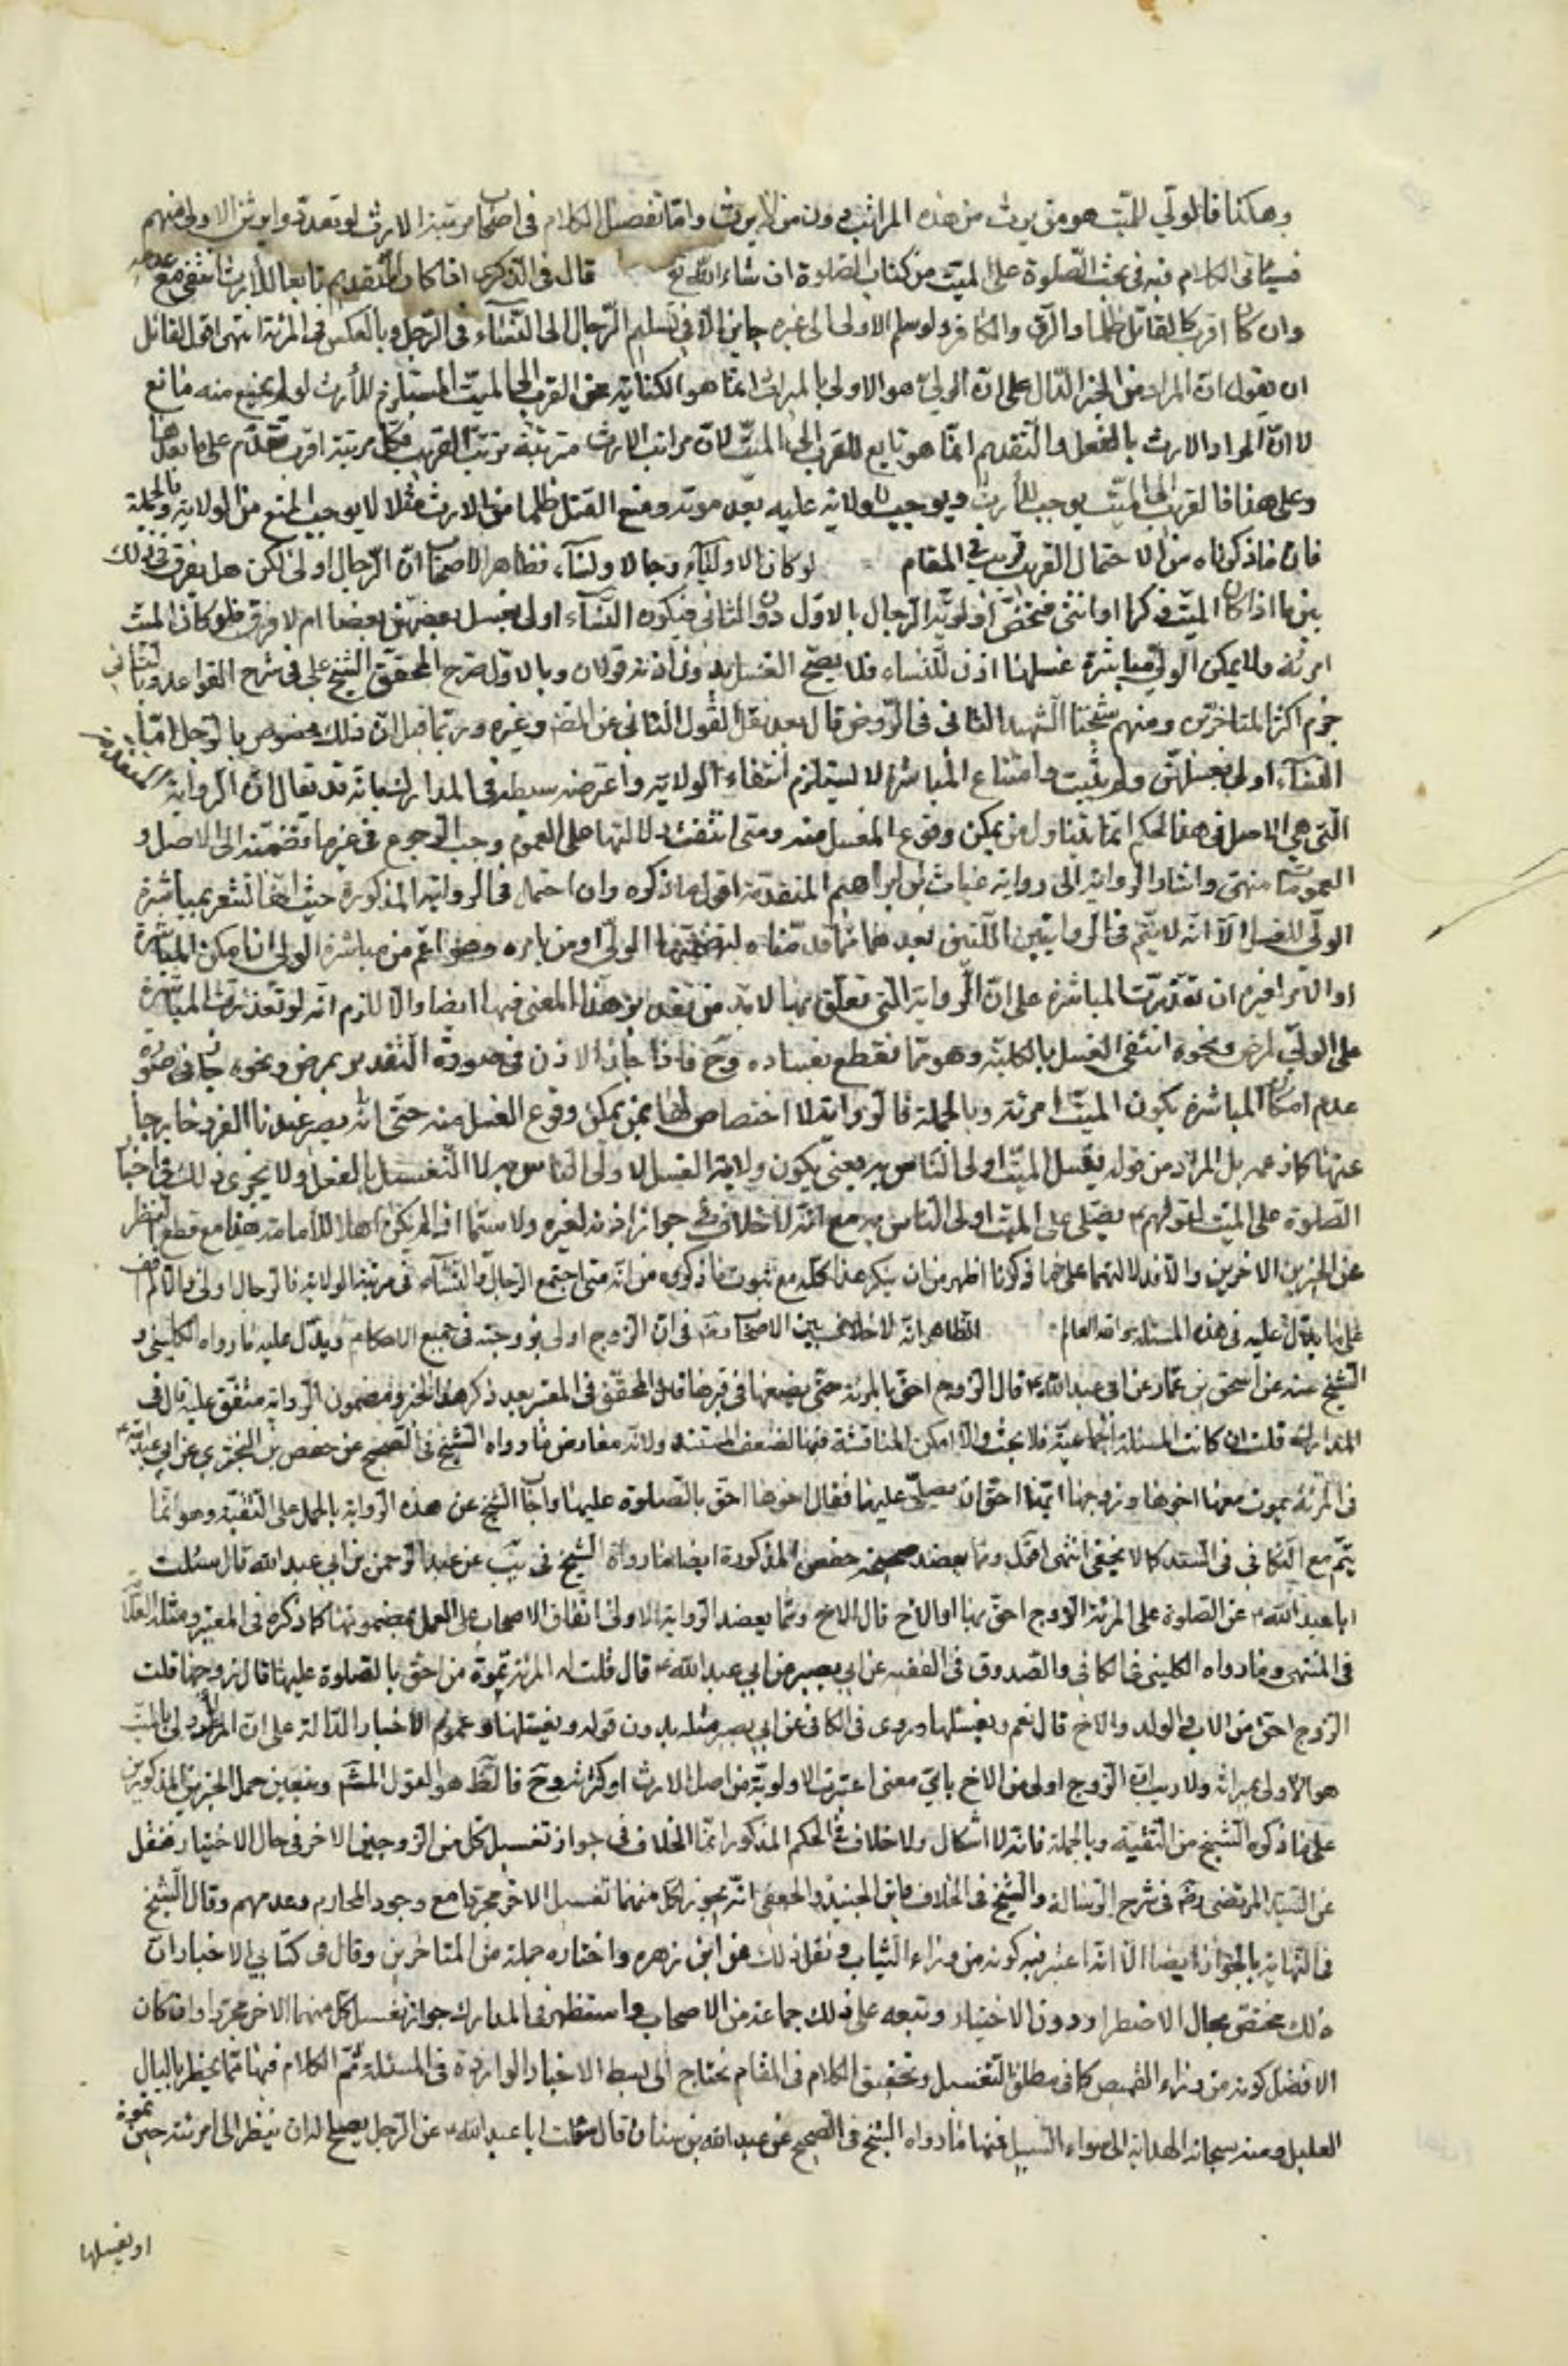 وهكذا فالولي للميت هو من يرث من هذه المراتب دون من لا يرث واما تفصيل الكلام في اصحاب مرتبة الارث لو تعددوا وايهم الاولى منهم
فسيأتي الكلام فيه في بحث الصلوة على الميت من كتاب الصلوة ان شاء الله تع قال في الذكرى اذا كان التقديم تابعا للأرث انتفى مع عدمه
وان كان اقرب كالقاتل ظلما والرق والكافر ولو سلم الاولى الى غيره جاز الا في تسليم الرجال الى النساء في الرجل وبالعكس في المرئة انتهى اقول لقائل
ان يقول ان المراد من الخبر الدال على ان الولي هو الاولى بالميراث انما هو الكناية عن القرب الى الميت المستلزم للأرث لو لم يمنع منه مانع
لا ان المراد الارث بالفعل والتقديم انما هو تابع للقرب الى الميت لان مراتب الارث مترتبة بترتب القرب فكل مرتبة اقرب تقدم على ما بعدها
وعلى هذا فالقرب الى الميت يوجب الأرث ويوجب الولاية عليه بعد موته ومنع القتل ظلما من الارث مثلا لا يوجب المنع من الولاية وبالجملة
فان ما ذكرناه من الاحتمال القريب قريب في المقام لو كان الاولياء رجالا ونساء فظاهر الاصحاب ان الرجال اولى لكن هل يفرق في ذلك
بين ما اذا كان الميت ذكرا او انثى فتختص اولوية الرجال بالاول دون الثاني فيكون النساء اولى بغسل بعضهن بعضا ام لا فرق فلو كان الميت
امرئة ولا يمكن الولي مباشرة غسلها اذن للنساء فلا يصح الغسل بدون اذنه قولان وبالاول صرح المحقق الشيخ علي في شرح القواعد وبالثاني
جزم اكثر المتاخرين ومنهم شيخنا الشهيد الثاني في الروض قال بعد نقل القول الثاني عن المصـ وغيره وربما قيل ان ذلك مخصوص بالرجل اما
النساء اولى بغسلهن ولم يثبت وامتناع المباشرة لا يستلزم انتفاء الولاية واعترضه سبطه في المدارك بانه قد يقال ان الرواية
التي هي الاصل في هذا الحكم انما يتناول من يمكن وقوع الغسل منه ومتى انتفت دلالتها على العموم وجب الرجوع في غيرها تضمنته الى الاصل و
العمومات انتهى واشار بالرواية الى رواية غياث بن ابراهيم المتقدمة اقول ما ذكره وان احتمل في الرواية المذكورة حيث انها تشعر بمباشرة
الولي للغسل الا انه لا يتم في الروايتين اللتين بعدها مما قدمناه لتضمنهما الولي او من يامره وهو اعم من مباشرة الولي ان امكن المباشرة
او الامر لغيره ان تعذرت المباشرة على ان الرواية التي تعلق بها لا بد من تقدير هذا المعنى فيها ايضا والا للزم انه لو تعذرت المباشرة
على الولي لمرض ونحوه انتفى الغسل بالكلية وهو مما نقطع بفساده وح فاذا جاز الاذن في صورة التقدير بمرض ونحوه جاز في صورة
عدم امكان المباشرة بكون الميت امرئة وبالجملة فالرواية لا اختصاص لها بمن يمكن وقوع الغسل منه حتى انه يصير عندنا الفرد خارجا
عنها كما زعمه بل المراد من قوله يغسل الميت اولى الناس به يعني يكون ولاية الغسل لاولى الناس به لا التغسيل بالفعل ولا يجزى ذلك في اخبار
الصلوة على الميت لقولهم ع يصلي على الميت اولى الناس به مع انه لا خلاف في جواز اذنه لغيره ولا سيما اذا لم يكن اهلا للأمامة هذا مع قطع النظر
عن الخبرين الاخرين والا فدلالتهما على ما ذكرنا اظهر من ان ينكر هذا كله مع ثبوت ما ذكروه من انه متى اجتمع الرجال والنساء في مرتبة الولاية فالرجال اولى والا لم اقف
على ما يدل عليه في هذه المسئلة والله العالم الظاهر انه لا خلاف بين الاصحاب رض في ان الزوج اولى بزوجته في جميع الاحكام ويدل عليه ما رواه الكليني و
الشيخ عنه عن اسحق بن عمار عن ابي عبد الله ع قال الزوج احق بالمرئة حتى يضعها في قبرها قال المحقق في المعتبر بعد ذكر هذا الخبر ومضمون الرواية متفق عليه قال في
المدارك قلت ان كانت المسئلة اجماعية فلا بحث والا امكن المناقشة فيها لضعف المستند ولانه معارض بما رواه الشيخ في الصحيح عن حفص بن البختري عن ابي عبد الله ع
في المرئة يموت معها اخوها وزوجها ايهما احق ان يصلي عليها فقال اخوها احق بالصلوة عليها واجاب الشيخ عن هذه الرواية بالحمل على التقية وهو انما
يتم مع التكافي في السند كما لا يخفى انتهى اقول ومما يعضد صحيحة حفص المذكورة ايضا ما رواه الشيخ في يب عن عبد الرحمن بن ابي عبد الله قال سئلت
ابا عبد الله ع عن الصلوة على المرئة الزوج احق بها او الاخ قال الاخ ومما يعضد الرواية الاولى اتفاق الاصحاب على العمل بمضمونها كما ذكره في المعتبر ومثله العلامة
في المنتهى وما رواه الكليني في الكافي والصدوق في الفقيه عن ابي بصير عن ابي عبد الله ع قال قلت له المرئة تموت من احق بالصلوة عليها قال زوجها قلت
الزوج احق من الاب والولد والاخ قال نعم ويغسلها وروى في الكافي عن ابي بصير مثله بدون قوله ويغسلها وعموم الاخبار الدالة على ان الاولى بالميت
هو الاولى بميراثه ولا ريب ان الزوج اولى من الاخ باي معنى اعتبرت الاولوية من اصل الارث او كثرته وح فالظ هو القول المشـ ويتعين حمل الخبرين المذكورين
على ما ذكره الشيخ من التقية وبالجملة فانه لا اشكال ولا خلاف في الحكم المذكور انما الخلاف في جواز تغسيل كل من الزوجين الاخر في حال الاختيار فنقل
عن السيد المرتضى رض في شرح الرسالة والشيخ في الخلاف وابن الجنيد والجعفي انه يجوز لكل منهما تغسيل الاخر مجردا مع وجود المحارم وعدمهم وقال الشيخ
في النهاية بالجواز ايضا الا انه اعتبر فيه كونه من وراء الثياب ونقل ذلك عن ابن زهره واختاره جملة من المتاخرين وقال في كتابي الاخبار ان
ذلك مختص بحال الاضطرار دون الاختيار وتبعه على ذلك جماعة من الاصحاب واستظهر في المدارك جواز تغسيل كل منهما الاخر مجردا وان كان
الافضل كونه من وراء القميص كما في مطلق التغسيل وتحقيق الكلام في المقام يحتاج الى بسط الاخبار الواردة في المسئلة ثم الكلام فيها بما يخطر بالبال
العليل ومنه سبحانه الهداية الى سواء السبيل فمنها ما رواه الشيخ في الصحيح عن عبد الله بن سنان قال سئلت ابا عبد الله ع عن الرجل يصلح له ان ينظر الى امرئته حين تموت
او يغسلها